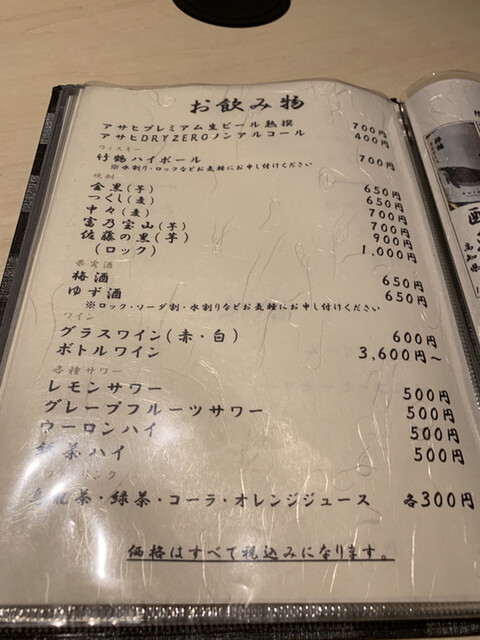 お飲み物
アサヒプレミアム生ビール熟撰 700円
アサヒDRYZEROノンアルコール 400円
ウィスキー
竹鶴ハイボール 700円
※水割り・ロックなどお気軽にお申し付けください
焼酎
金黒(芋) 650円
つくし(麦) 650円
中々(麦) 700円
富乃宝山(芋) 700円
佐藤の黒(芋) 900円
(ロック) 1,000円
果実酒
梅酒 650円
ゆず酒 650円
※ロック・ソーダ割・水割りなどお気軽にお申し付けください
ワイン
グラスワイン(赤・白) 600円
ボトルワイン 3,600円～
各種サワー
レモンサワー 500円
グレープフルーツサワー 500円
ウーロンハイ 500円
茶ハイ 500円
リンク
龍茶・緑茶・コーラ・オレンジジュース 各300円
価格はすべて税込みになります。